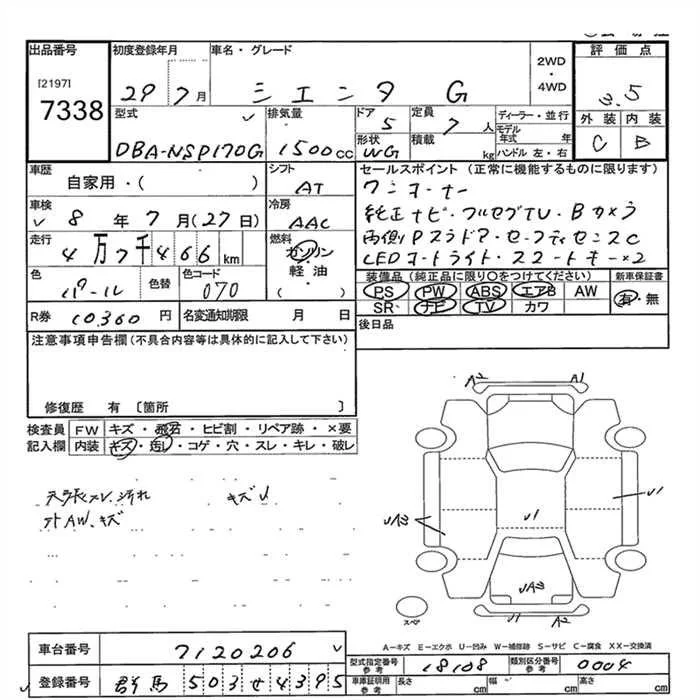 出品番号 初度登録年月 車名・グレード 2WD・4WD 評価点
[2197]
7338
29 7月 シエンタ G
3.5
型式 排気量 ドア 定員 ディーラー・並行 外装 内装
DBA-NSP170G 1500cc 5 7人 モデル年式 年
形状 積載 C B
WG kg ハンドル 左・右
車歴 シフト セールスポイント (正常に機能するものに限ります)
自家用・( ) AT ワンオーナー
車検 冷房 純正ナビ・フルセグTV・Bカメラ
8年7月(27日) AAC 両側Pスラドア・セーフティセンスC
走行 燃料 LEDオートライト・スマートキー×2
4万7千466km ガソリン・軽油・( )
装備品 (純正品に限り○をつけてください) 新車保証書
色 色替 色コード PS PW ABS エアB AW 有・無
パール 070 SR ナビ TV カワ
R券 10.360円 名変通知期限 月 日 後日品
注意事項申告欄 (不具合内容等は具体的に記入して下さい)
修復歴 有 〔箇所 〕
検査員 FW キズ・飛石・ヒビ割・リペア跡・×要
記入欄 内装 キズ・汚し・コゲ・穴・スレ・キレ・破レ
天張スレ、汚れ キズU
外AW、キズ
A2 A1
UA3 U1
U1
UA3
スペア U1 A2
A―キズ E―エクボ U―凹み W―補修跡 S―サビ C―腐食 XX―交換済
車台番号 7120206 型式指定番号 参考 18108 類別区分番号 参考 0004
登録番号 群馬503せ4395 車庫証明用 参考 長さ cm 幅 cm 高さ cm